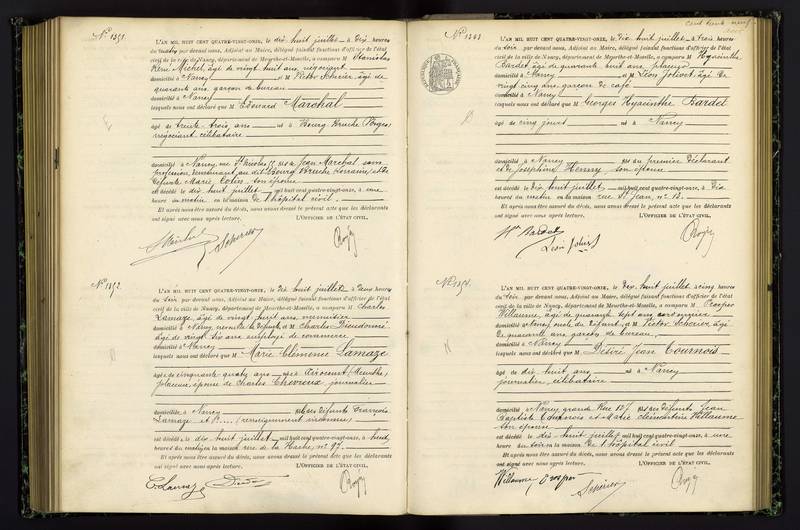 N° 1351.
L'AN MIL HUIT CENT QUATRE-VINGT-ONZE, le dix huit juillet à dix heures
du matin par devant nous, Adjoint au Maire, délégué faisant fonctions d'officier de l'état
civil de la ville de Nancy, département de Meurthe-et-Moselle, a comparu M Stanislas
René Michel, âgé de vingt huit ans, négociant
domicilié à Nancy et M Victor Scherier, âgé de
quarante ans, garçon de bureau
domicilié à Nancy
lesquels nous ont déclaré que M Edouard Marchal
âgé de trente-trois ans né à Bourg Bruche (Vosges)
négociant célibataire
domicilié à Nancy, rue St Nicolas fils de Jean Marchal, sans
profession, demeurant au dit Bourg Bruche Lorraine, et de
défunte Marie Colin, son épouse
est décédé le dix huit juillet mil huit cent quatre-vingt-onze, à une
heure du matin en la maison de l'hôpital civil.
Et après nous être assuré du décès, nous avons dressé le présent acte que les déclarants
ont signé avec nous après lecture. L'OFFICIER DE L'ÉTAT CIVIL,
Michel
Scherier
N° 1352.
L'AN MIL HUIT CENT QUATRE-VINGT-ONZE, le dix huit juillet à deux heures
du soir par devant nous, Adjoint au Maire, délégué faisant fonctions d'officier de l'état
civil de la ville de Nancy, département de Meurthe-et-Moselle, a comparu M Charles
Lamaze, âgé de vingt huit ans, menuisier
domicilié à Nancy, neveu de la défunte et M Charles Dieudonné
âgé de vingt six ans employé de commerce
domicilié à Nancy
lesquels nous ont déclaré que M Marie Clémence Lamaze
âgée de cinquante quatre ans née à Azincourt (Meurthe)
épouse de Charles Chevreux, journalier
domiciliée à Nancy fille des défunts François
Lamaze et D.... (renseignement inconnu)
est décédée le dix huit juillet mil huit cent quatre-vingt-onze, à huit
heures du matin en la maison rue de la Hache, n° 97.
Et après nous être assuré du décès, nous avons dressé le présent acte que les déclarants
ont signé avec nous après lecture. L'OFFICIER DE L'ÉTAT CIVIL,
C. Lamaze
cent trente neuf
N° 1353
L'AN MIL HUIT CENT QUATRE-VINGT-ONZE, le dix huit juillet à trois heures
du soir par devant nous, Adjoint au Maire, délégué faisant fonctions d'officier de l'état
civil de la ville de Nancy, département de Meurthe-et-Moselle, a comparu M Hyacinthe
Bardet âgé de quarante huit ans
domicilié à Nancy et M Léon Jolivet, âgé de
vingt cinq ans garçon de café
domicilié à Nancy
lesquels nous ont déclaré que M Georges Hyacinthe Bardet
âgé de cinq jours né à Nancy
domicilié à Nancy fils du premier déclarant
et de Joséphine Henry son épouse
est décédé le dix huit juillet mil huit cent quatre-vingt-onze, à dix
heures du matin en la maison rue St Jean, n° 13.
Et après nous être assuré du décès, nous avons dressé le présent acte que les déclarants
ont signé avec nous après lecture. L'OFFICIER DE L'ÉTAT CIVIL,
Hte Bardet
Léon Jolivet
N° 1354.
L'AN MIL HUIT CENT QUATRE-VINGT-ONZE, le dix huit juillet à cinq heures
du soir par devant nous, Adjoint au Maire, délégué faisant fonctions d'officier de l'état
civil de la ville de Nancy, département de Meurthe-et-Moselle, a comparu M Prosper
Willaume, âgé de quarante sept ans cordonnier
domicilié à Nancy, oncle du défunt et M Victor Scherier âgé
de quarante ans, garçon de bureau
domicilié à Nancy
lesquels nous ont déclaré que M Désiré Jean Tournois
âgé de dix huit ans né à Nancy
journalier, célibataire
domicilié à Nancy grande Rue 127 fils des défunts Jean
Baptiste Tournois et Marie Clémentine Willaume
son épouse
est décédé le dix huit juillet mil huit cent quatre-vingt-onze, à une
heure du soir en la maison de l'hôpital civil
Et après nous être assuré du décès, nous avons dressé le présent acte que les déclarants
ont signé avec nous après lecture. L'OFFICIER DE L'ÉTAT CIVIL,
Willaume Prosper
Scherier